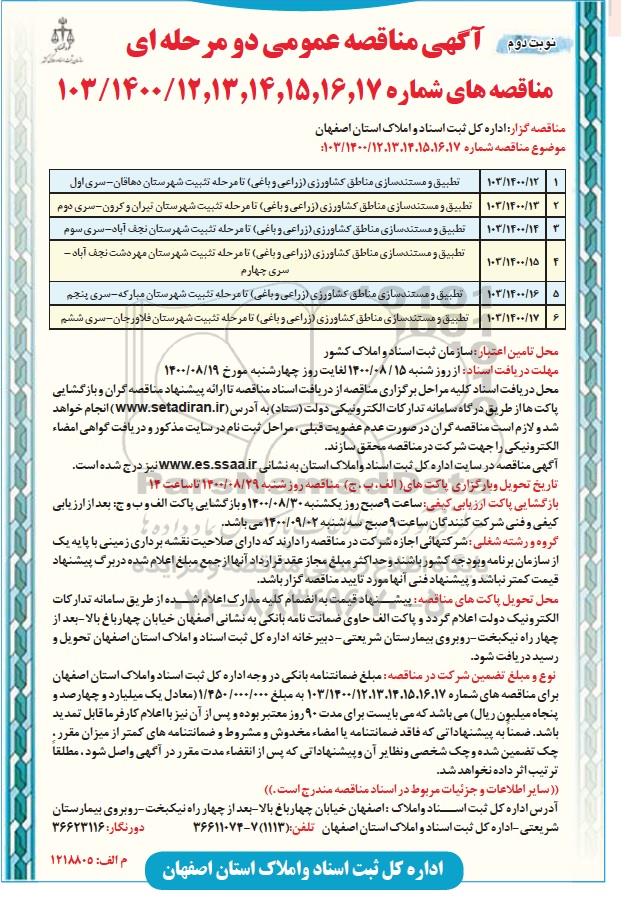 نوبت دوم
آگهی مناقصه عمومی دو مرحله ای
مناقصه های شماره ۱۰۳/۱۴۰۰/۱۲,۱۳,۱۴,۱۵,۱۶,۱۷
مناقصه گزار: اداره کل ثبت اسناد و املاک استان اصفهان
موضوع مناقصه شماره ۱۰۳/۱۴۰۰/۱۲.۱۳.۱۴.۱۵.۱۶.۱۷:
۱ ۱۰۳/۱۴۰۰/۱۲ تطبیق و مستندسازی مناطق کشاورزی (زراعی و باغی) تا مرحله تثبیت شهرستان دهاقان-سری اول
۲ ۱۰۳/۱۴۰۰/۱۳ تطبیق و مستندسازی مناطق کشاورزی (زراعی و باغی) تا مرحله تثبیت شهرستان تیران و کرون-سری دوم
۳ ۱۰۳/۱۴۰۰/۱۴ تطبیق و مستندسازی مناطق کشاورزی (زراعی و باغی) تا مرحله تثبیت شهرستان نجف آباد-سری سوم
۴ ۱۰۳/۱۴۰۰/۱۵ تطبیق و مستندسازی مناطق کشاورزی (زراعی و باغی) تا مرحله تثبیت شهرستان مهردشت نجف آباد-
سری چهارم
۵ ۱۰۳/۱۴۰۰/۱۶ تطبیق و مستندسازی مناطق کشاورزی (زراعی و باغی) تا مرحله تثبیت شهرستان مبارکه-سری پنجم
۶ ۱۰۳/۱۴۰۰/۱۷ تطبیق و مستندسازی مناطق کشاورزی (زراعی و باغی) تا مرحله تثبیت شهرستان فلاورجان-سری ششم
محل تامین اعتبار: سازمان ثبت اسناد و املاک کشور
مهلت دریافت اسناد: از روز شنبه ۱۴۰۰/۰۸/۱۵ لغایت روز چهارشنبه مورخ ۱۴۰۰/۰۸/۱۹
محل دریافت اسناد کلیه مراحل برگزاری مناقصه از دریافت اسناد مناقصه تا ارائه پیشنهاد مناقصه گران و بازگشایی
پاکت ها از طریق درگاه سامانه تدارکات الکترونیکی دولت (ستاد) به آدرس (www.setadiran.ir) انجام خواهد
شد و لازم است مناقصه گران در صورت عدم عضویت قبلی، مراحل ثبت نام در سایت مذکور و دریافت گواهی امضاء
الکترونیکی را جهت شرکت در مناقصه محقق سازند.
آگهی مناقصه در سایت اداره کل ثبت اسناد و املاک استان به نشانی www.es.ssaa.ir نیز درج شده است.
تاریخ تحویل و بارگزاری پاکت های( الف، ب، ج) مناقصه روز شنبه ۱۴۰۰/۰۸/۲۹ تا ساعت ۱۴
بازگشایی پاکت ارزیابی کیفی: ساعت ۹ صبح روز یکشنبه ۱۴۰۰/۰۸/۳۰ و بازگشایی پاکت الف و ب و ج: بعد از ارزیابی
کیفی و فنی شرکت کنندگان ساعت ۹ صبح سه شنبه ۱۴۰۰/۰۹/۰۲ می باشد.
گروه و رشته شغلی: شرکتهائی اجازه شرکت در مناقصه را دارند که دارای صلاحیت نقشه برداری زمینی با پایه یک
از سازمان برنامه و بودجه کشور باشند و حداکثر مبلغ مجاز عقد قرارداد آنها از جمع مبلغ اعلام شده در برگ پیشنهاد
قیمت کمتر نباشد و پیشنهاد فنی آنها مورد تایید مناقصه گزار باشد.
محل تحویل پاکت های مناقصه: پیشنهاد قیمت به انضمام کلیه مدارک اعلام شده از طریق سامانه تدارکات
الکترونیک دولت اعلام گردد و پاکت الف حاوی ضمانت نامه بانکی به نشانی اصفهان خیابان چهارباغ بالا-بعد از
چهار راه نیکبخت-روبروی بیمارستان شریعتی-دبیرخانه اداره کل ثبت اسناد و املاک استان اصفهان تحویل و
رسید دریافت شود.
نوع و مبلغ تضمین شرکت در مناقصه: مبلغ ضمانتنامه بانکی در وجه اداره کل ثبت اسناد واملاک استان اصفهان
برای مناقصه های شماره ۱۰۳/۱۴۰۰/۱۲.۱۳.۱۴.۱۵.۱۶.۱۷ به مبلغ ۱/۴۵۰/۰۰۰/۰۰۰ (معادل یک میلیارد و چهارصد و
پنجاه میلیون ریال) می باشد که می بایست برای مدت ۹۰ روز معتبر بوده و پس از آن نیز با اعلام کارفرما قابل تمدید
باشد. ضمناً به پیشنهاداتی که فاقد ضمانتنامه یا امضاء مخدوش و مشروط و ضمانتنامه های کمتر از میزان مقرر ،
چک تضمین شده و چک شخصی و نظایر آن و پیشنهاداتی که پس از انقضاء مدت مقرر در آگهی واصل شود ، مطلقاً
ترتیب اثر داده نخواهد شد.
((سایر اطلاعات و جزئیات مربوط در اسناد مناقصه مندرج است.))
آدرس اداره کل ثبت اسناد واملاک : اصفهان خیابان چهارباغ بالا-بعد از چهار راه نیکبخت-روبروی بیمارستان
شریعتی-اداره کل ثبت اسناد و املاک استان اصفهان تلفن: (۱۱۱۳) ۷-۳۶۶۱۱۰۷۴ دورنگار: ۳۶۶۲۳۱۱۶
م الف: ۱۲۱۸۸۰۵
اداره کل ثبت اسناد واملاک استان اصفهان